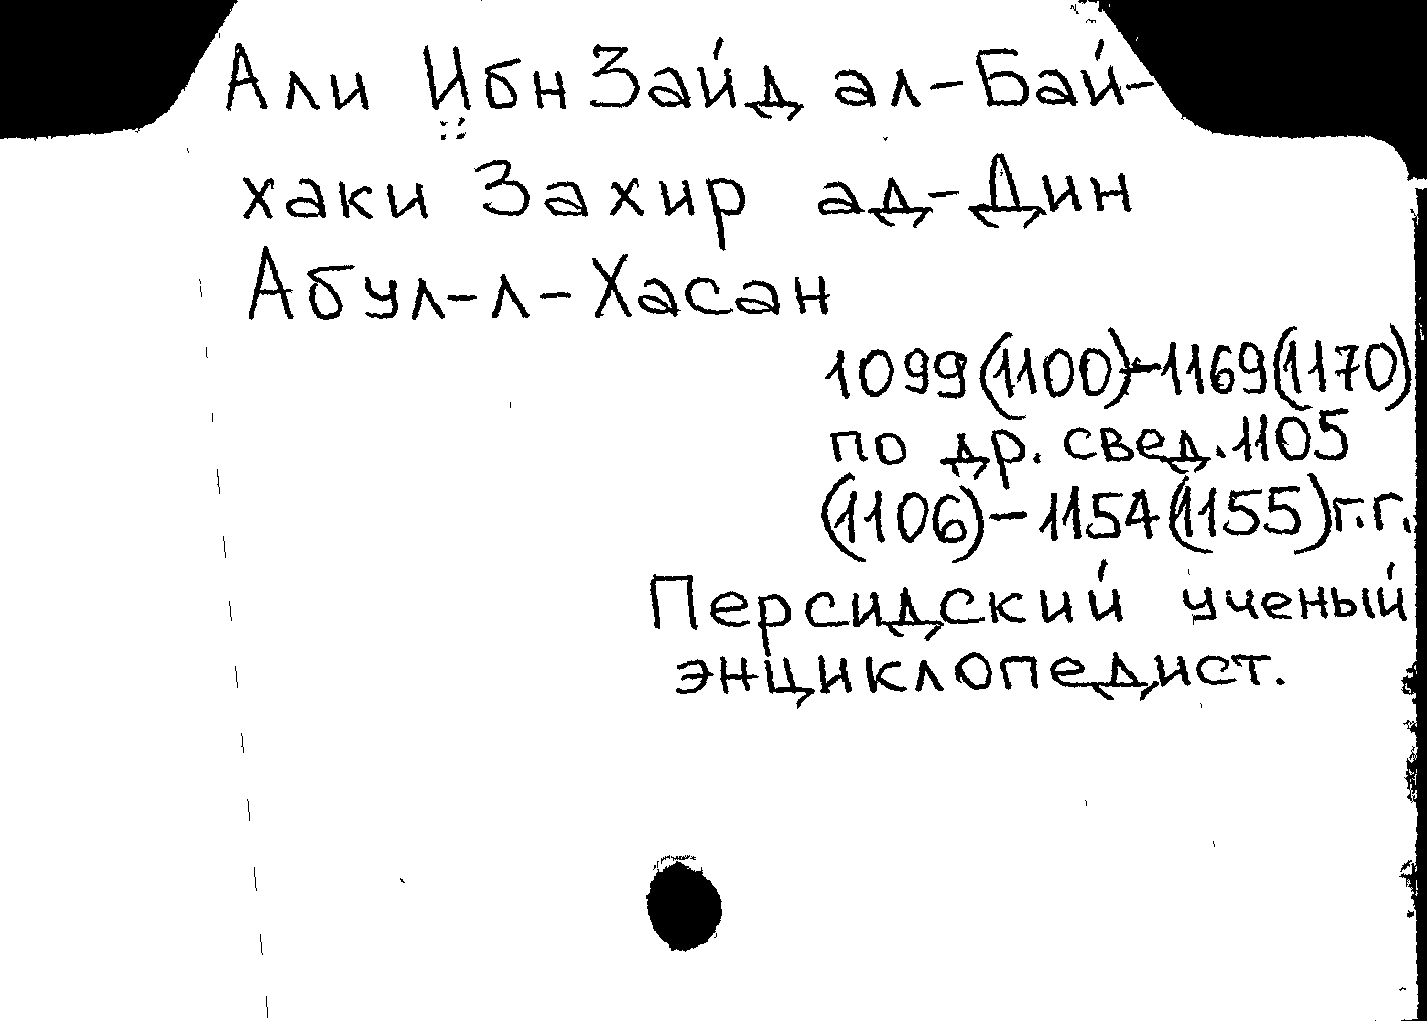 Али Ибн Зайд ал-Бай-
хаки Захир ад-Дин
Абул-л-Хасан
1099(1100)-1169(1170)
по др. свед. 1105
(1106)-1154(1155)г.г.
Персидский ученый
энциклопедист.